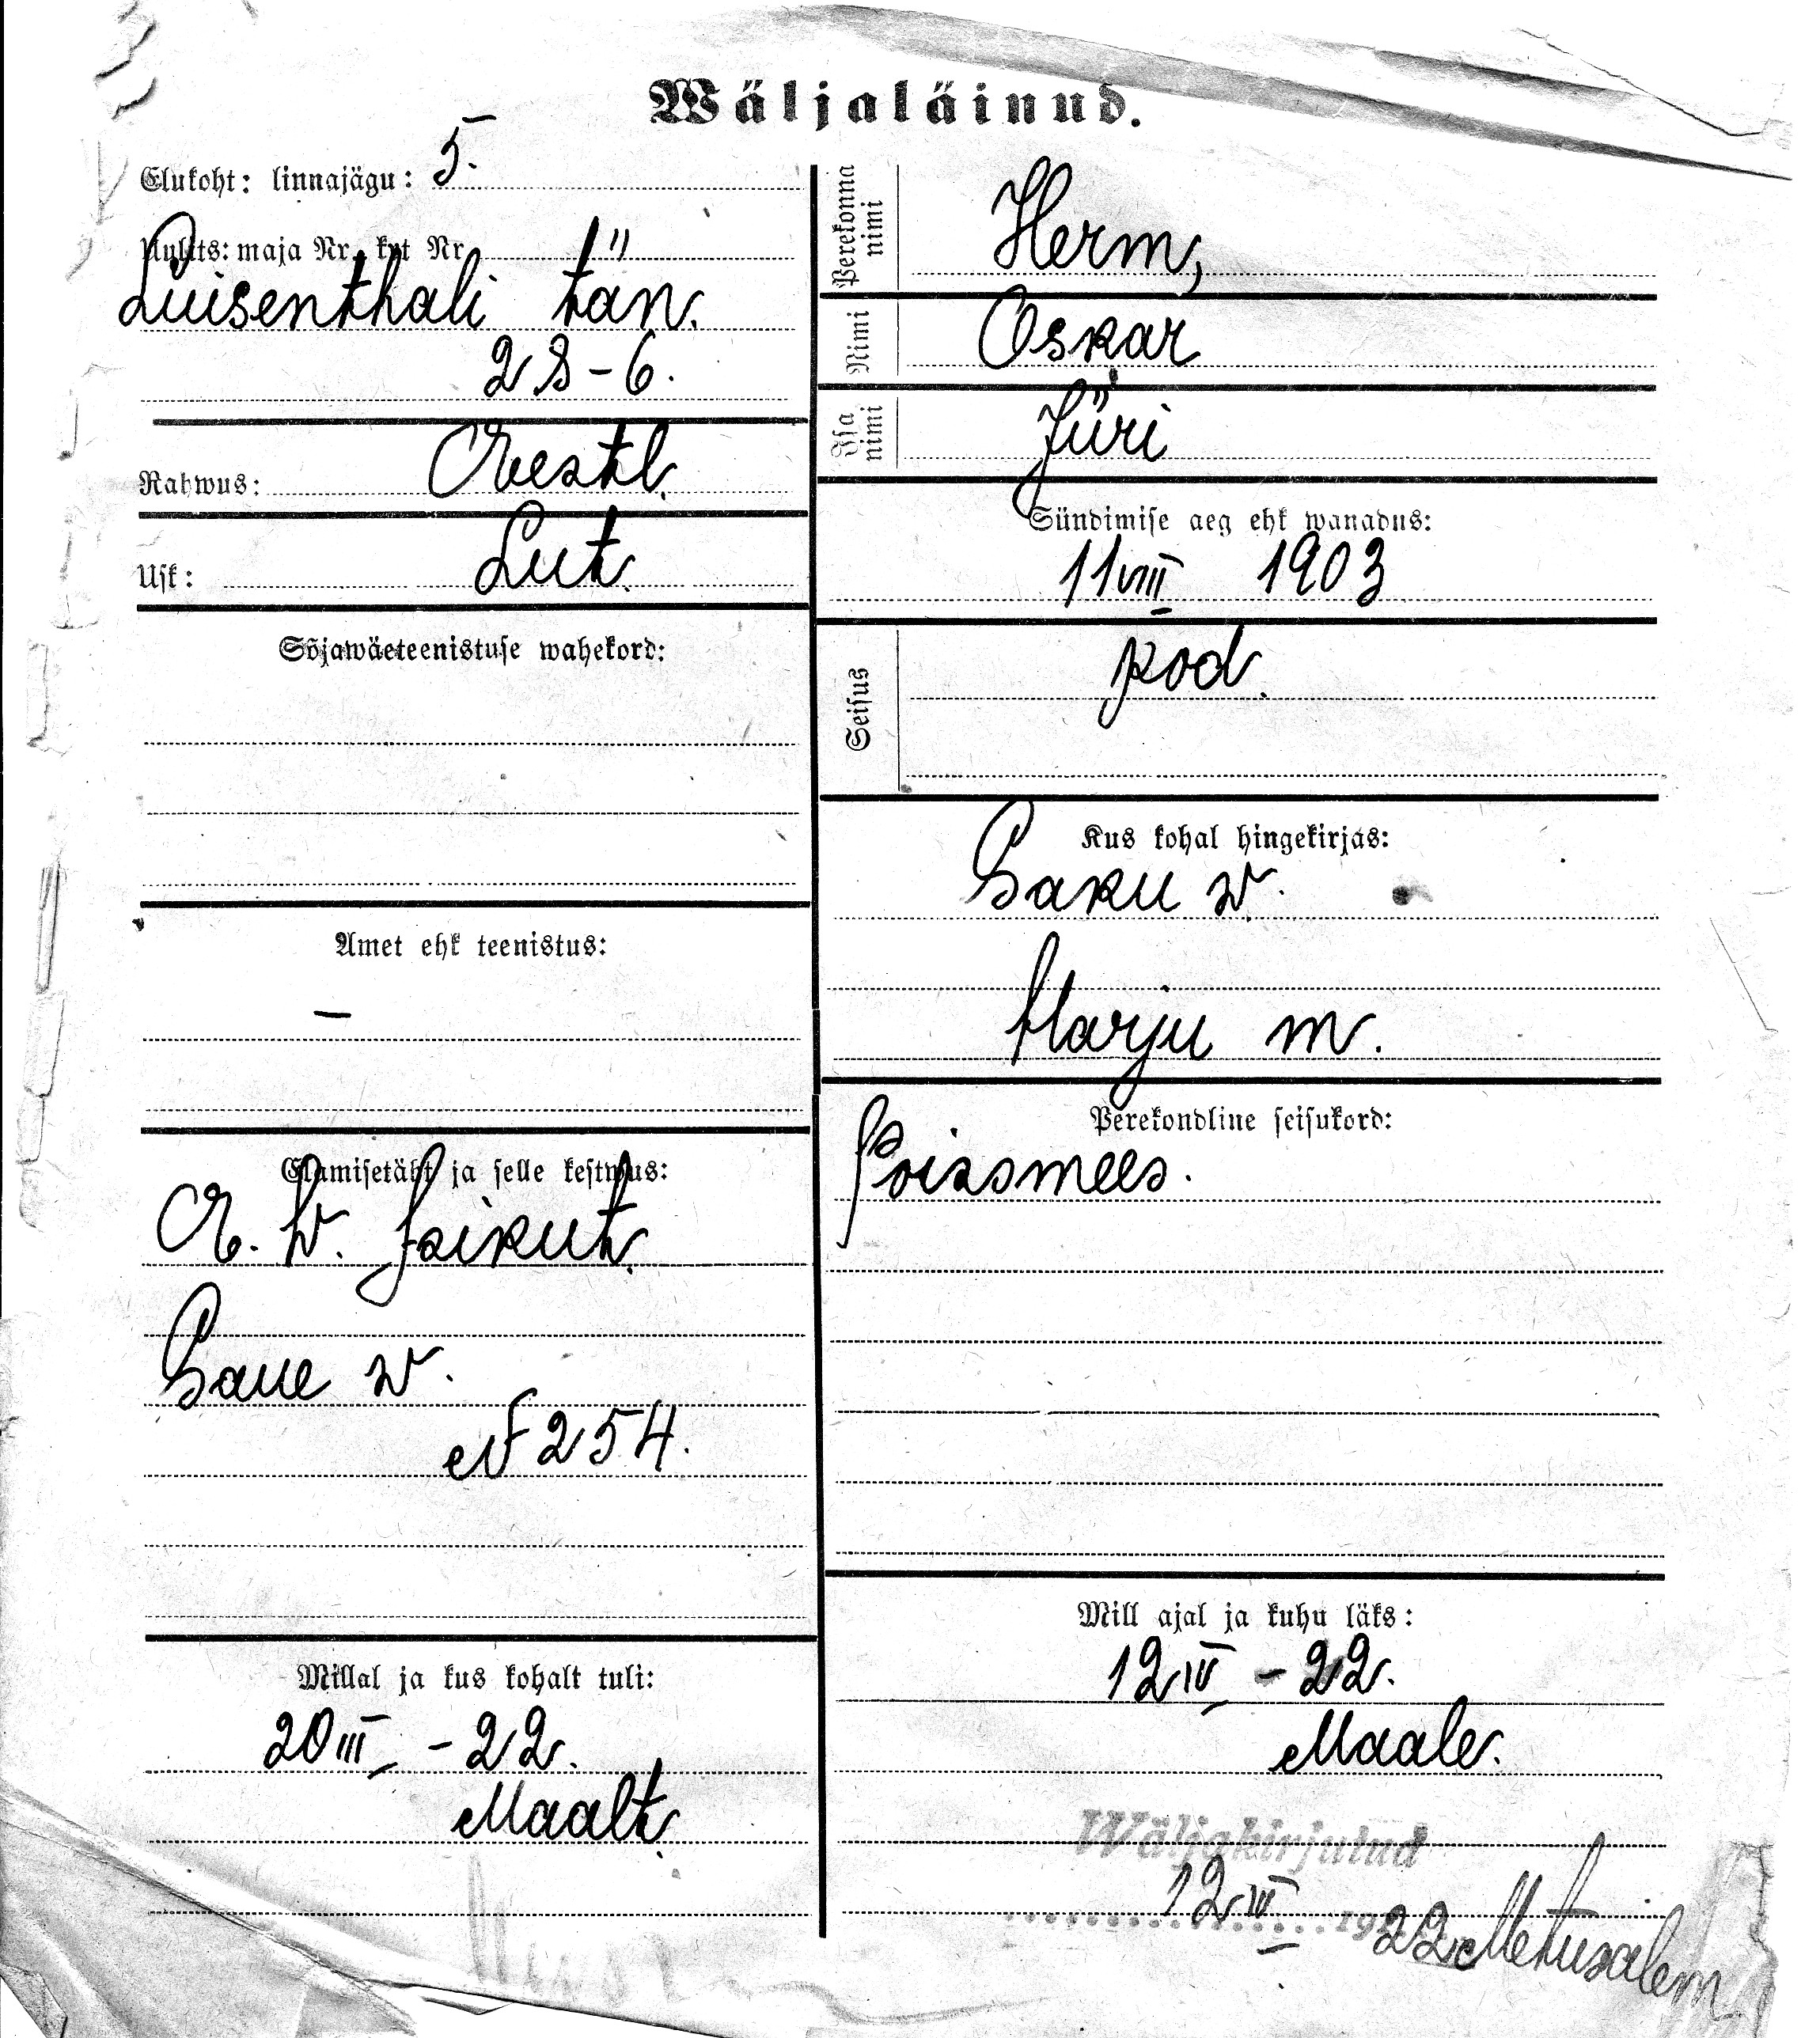 Wäljaläinud.
Elukoht: linnajägu: 5.
Uulits: maja Nr. krt Nr.
Luisenthali tän.
28-6.
Rahwus: Eestl.
Usk: Lut.
Sõjawäeteenistuse wahekord:
Amet ehk teenistus:
—
Elamisetäht ja selle kestwus:
E. W. Isikut.
Saue w.
№ 254.
Millal ja kus kohalt tuli:
20 III - 22.
Maalt.
Perekonna nimi Herm,
Nimi Oskar
Isa nimi Jüri
Sündimise aeg ehk wanadus:
11 VIII 1903
Seisus kod.
Kus kohal hingekirjas:
Saku w.
Harju m.
Perekondline seisukord:
Poissmees.
Mill ajal ja kuhu läks:
12 IV - 22.
Maale.
Wäljakirjutud
12 IV 1922 Metusalem